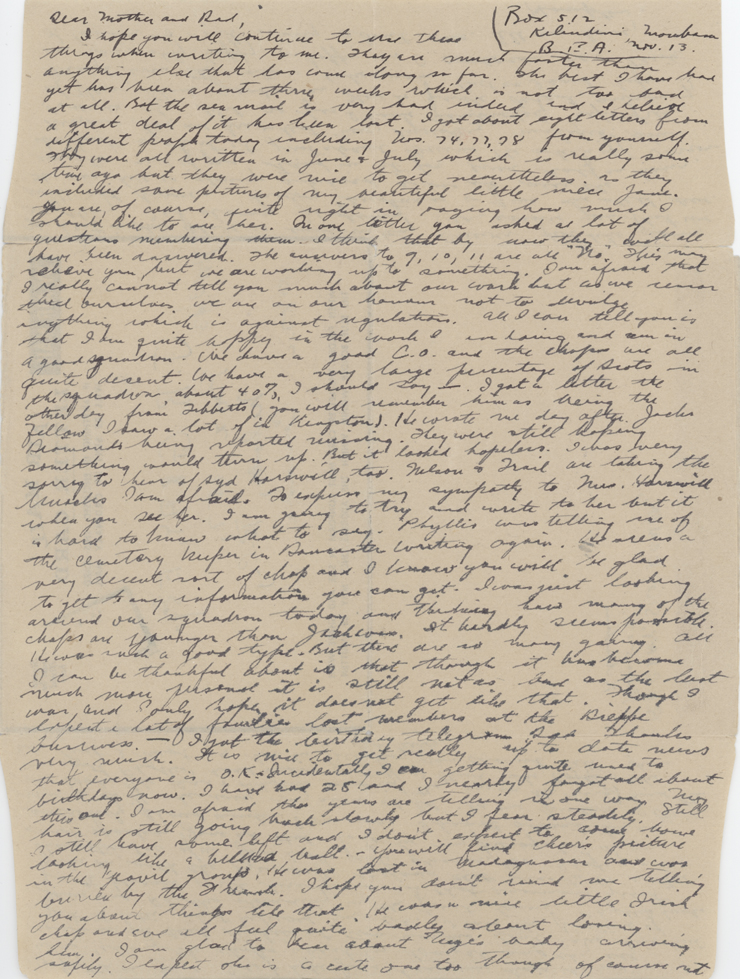 Dear Mother and Dad,
Box 512
Kilindini Mombasa
B.E.A. Nov. 13.
I hope you will continue to use these
things when writing to me. They are much faster than
anything else that has come along so far. The best I have had
yet has been about three weeks which is not too bad
at all. But the sea mail is very bad indeed and I believe
a great deal of it has been lost. I got about eight letters from
different people today including Nos. 74, 77, 78 from yourself.
They were all written in June & July which is really some
time ago but they were nice to get nevertheless as they
included some pictures of my beautiful little niece Jane.
You are, of course, quite right in saying how much I
should like to see her. In one letter you asked a lot of
questions numbering them. I think that by now they will all
have been answered. The answers to 9, 10, 11 are all "No". This may
relieve you but we are working up to something. I am afraid that
I really cannot tell you much about our work but as we censor
ourselves we are on our honour not to divulge
anything which is against regulations. All I can tell you is
that I am quite happy in the work I am doing and am in
a good squadron. We have a good C.O. and the chaps are all
quite decent. We have a very large percentage of Scots in
the squadron, about 40%, I should say —. I got a letter the
other day from Tibbetts (you will remember him as being the
fellow I saw a lot of in Kingston). He wrote me day after Jacks
Diamonds being reported missing. They were still hoping
something would turn up. But it looked hopeless. I was very
sorry to hear of Syd Horswill, too. Nelson & Trail are taking the
knocks I am afraid. Do express my sympathy to Mrs. Horswill
when you see her. I am going to try and write to her but it
is hard to know what to say. Phyllis was telling me of
the cemetery keeper in Doncaster writing again. He seems a
very decent sort of chap and I know you will be glad
to get any information you can get. I was just looking
around our squadron today and thinking how many of the
chaps are younger than Jack was. It hardly seems possible.
He was such a good type. But there are so many going. All
I can be thankful about is that though it has become
much more personal it is still not as bad as the last
war and I only hope it does not get like that. Though I
expect a lot of families lost members at the Dieppe
business. — I got the birthday telegram Dad thanks
very much. It is nice to get really up to date news
that everyone is O.K. Incidentally I am getting quite used to
birthdays now. I have had 25 and I nearly forgot all about
this one. I am afraid the years are telling in one way. My
hair is still going back slowly but I fear steadily. Still
I still have some left and I don't expect to come home
looking like a billiard ball. — You will find picture
in the group. He was lost in Madagascar and was
buried by the French. I hope you don't mind me telling
you about things like that. He was a nice little Irish
chap and we all feel quite badly about losing
him. I am glad to hear about baby arriving
safely. I expect she is a cute one too though of course not